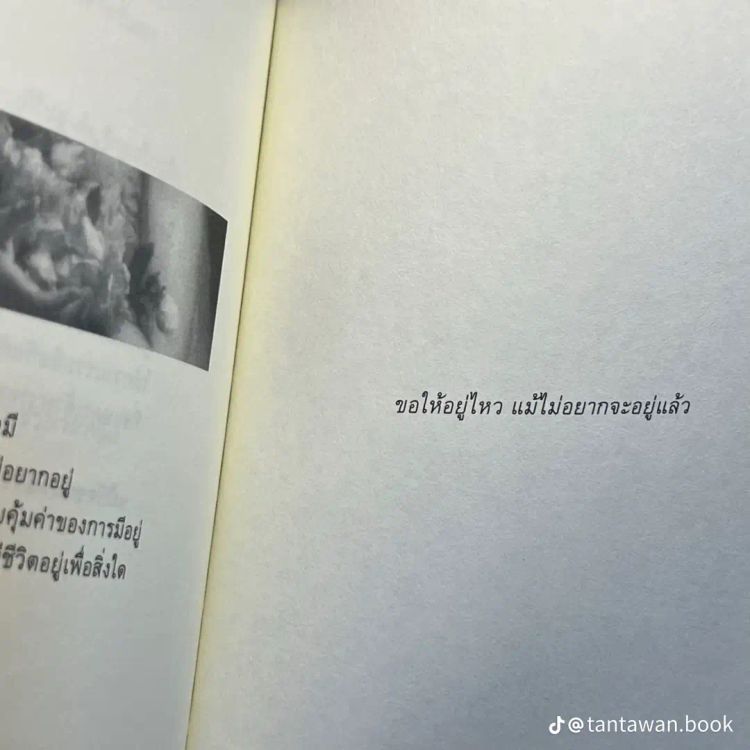 มี
อยากอยู่
คุ้มค่าของการมีอยู่
ชีวิตอยู่เพื่อสิ่งใด
ขอให้อยู่ไหว แม้ไม่อยากจะอยู่แล้ว
@tantawan.book